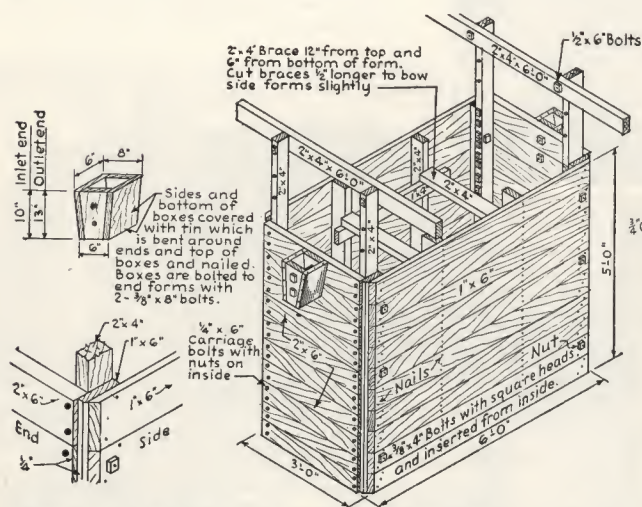 2"x 4" Brace 12" from top and
6" from bottom of form.
Cut braces ½" longer to bow
side forms slightly
½"x 6" Bolts
2"x 4"x 6'-0"
2"x 4"x 6'-0"
2"x 4"
2"x 4"
2"x 4"
2"x 4"
1"x 4"
2"x 4"
Inlet end
Outlet end
10"
13"
6"
8"
6"
Sides and
bottom of
boxes covered
with tin which
is bent around
ends and top of
boxes and nailed.
Boxes are bolted to
end forms with
2-⅜"x 8" bolts.
¼" x 6"
Carriage
bolts with
nuts on
inside
2"x 6"
1"x 6"
5'-0"
Nails
Nut
⅜"x 4" Bolts with square heads
and inserted from inside.
6'-0"
3'-0"
2"x 4"
1"x 6"
2"x 6"
1"x 6"
End
Side
¼"
¾"